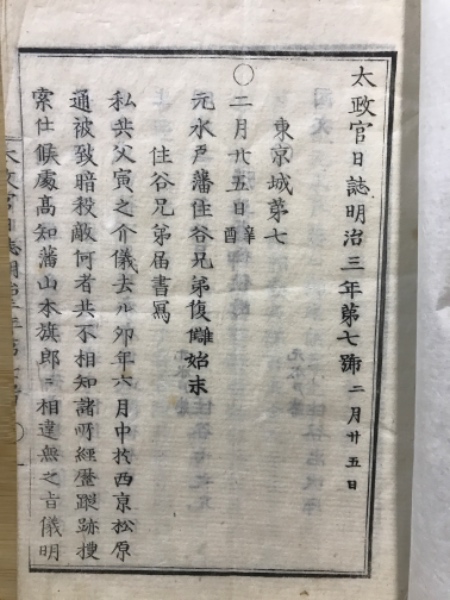 太政官日誌明治三年第七號 二月廿五日
東京城第七
〇二月廿五日辛酉
元水戸藩住谷兄弟復讎始末
住谷兄弟届書寫
私共父寅之介儀去ル卯年六月中於西京松原
通被致暗殺敵何者共不相知諸所經歴蹤跡捜
索仕候處高知藩山本旗郎ニ相違無之旨儀明
太政官日誌明治三年第七號